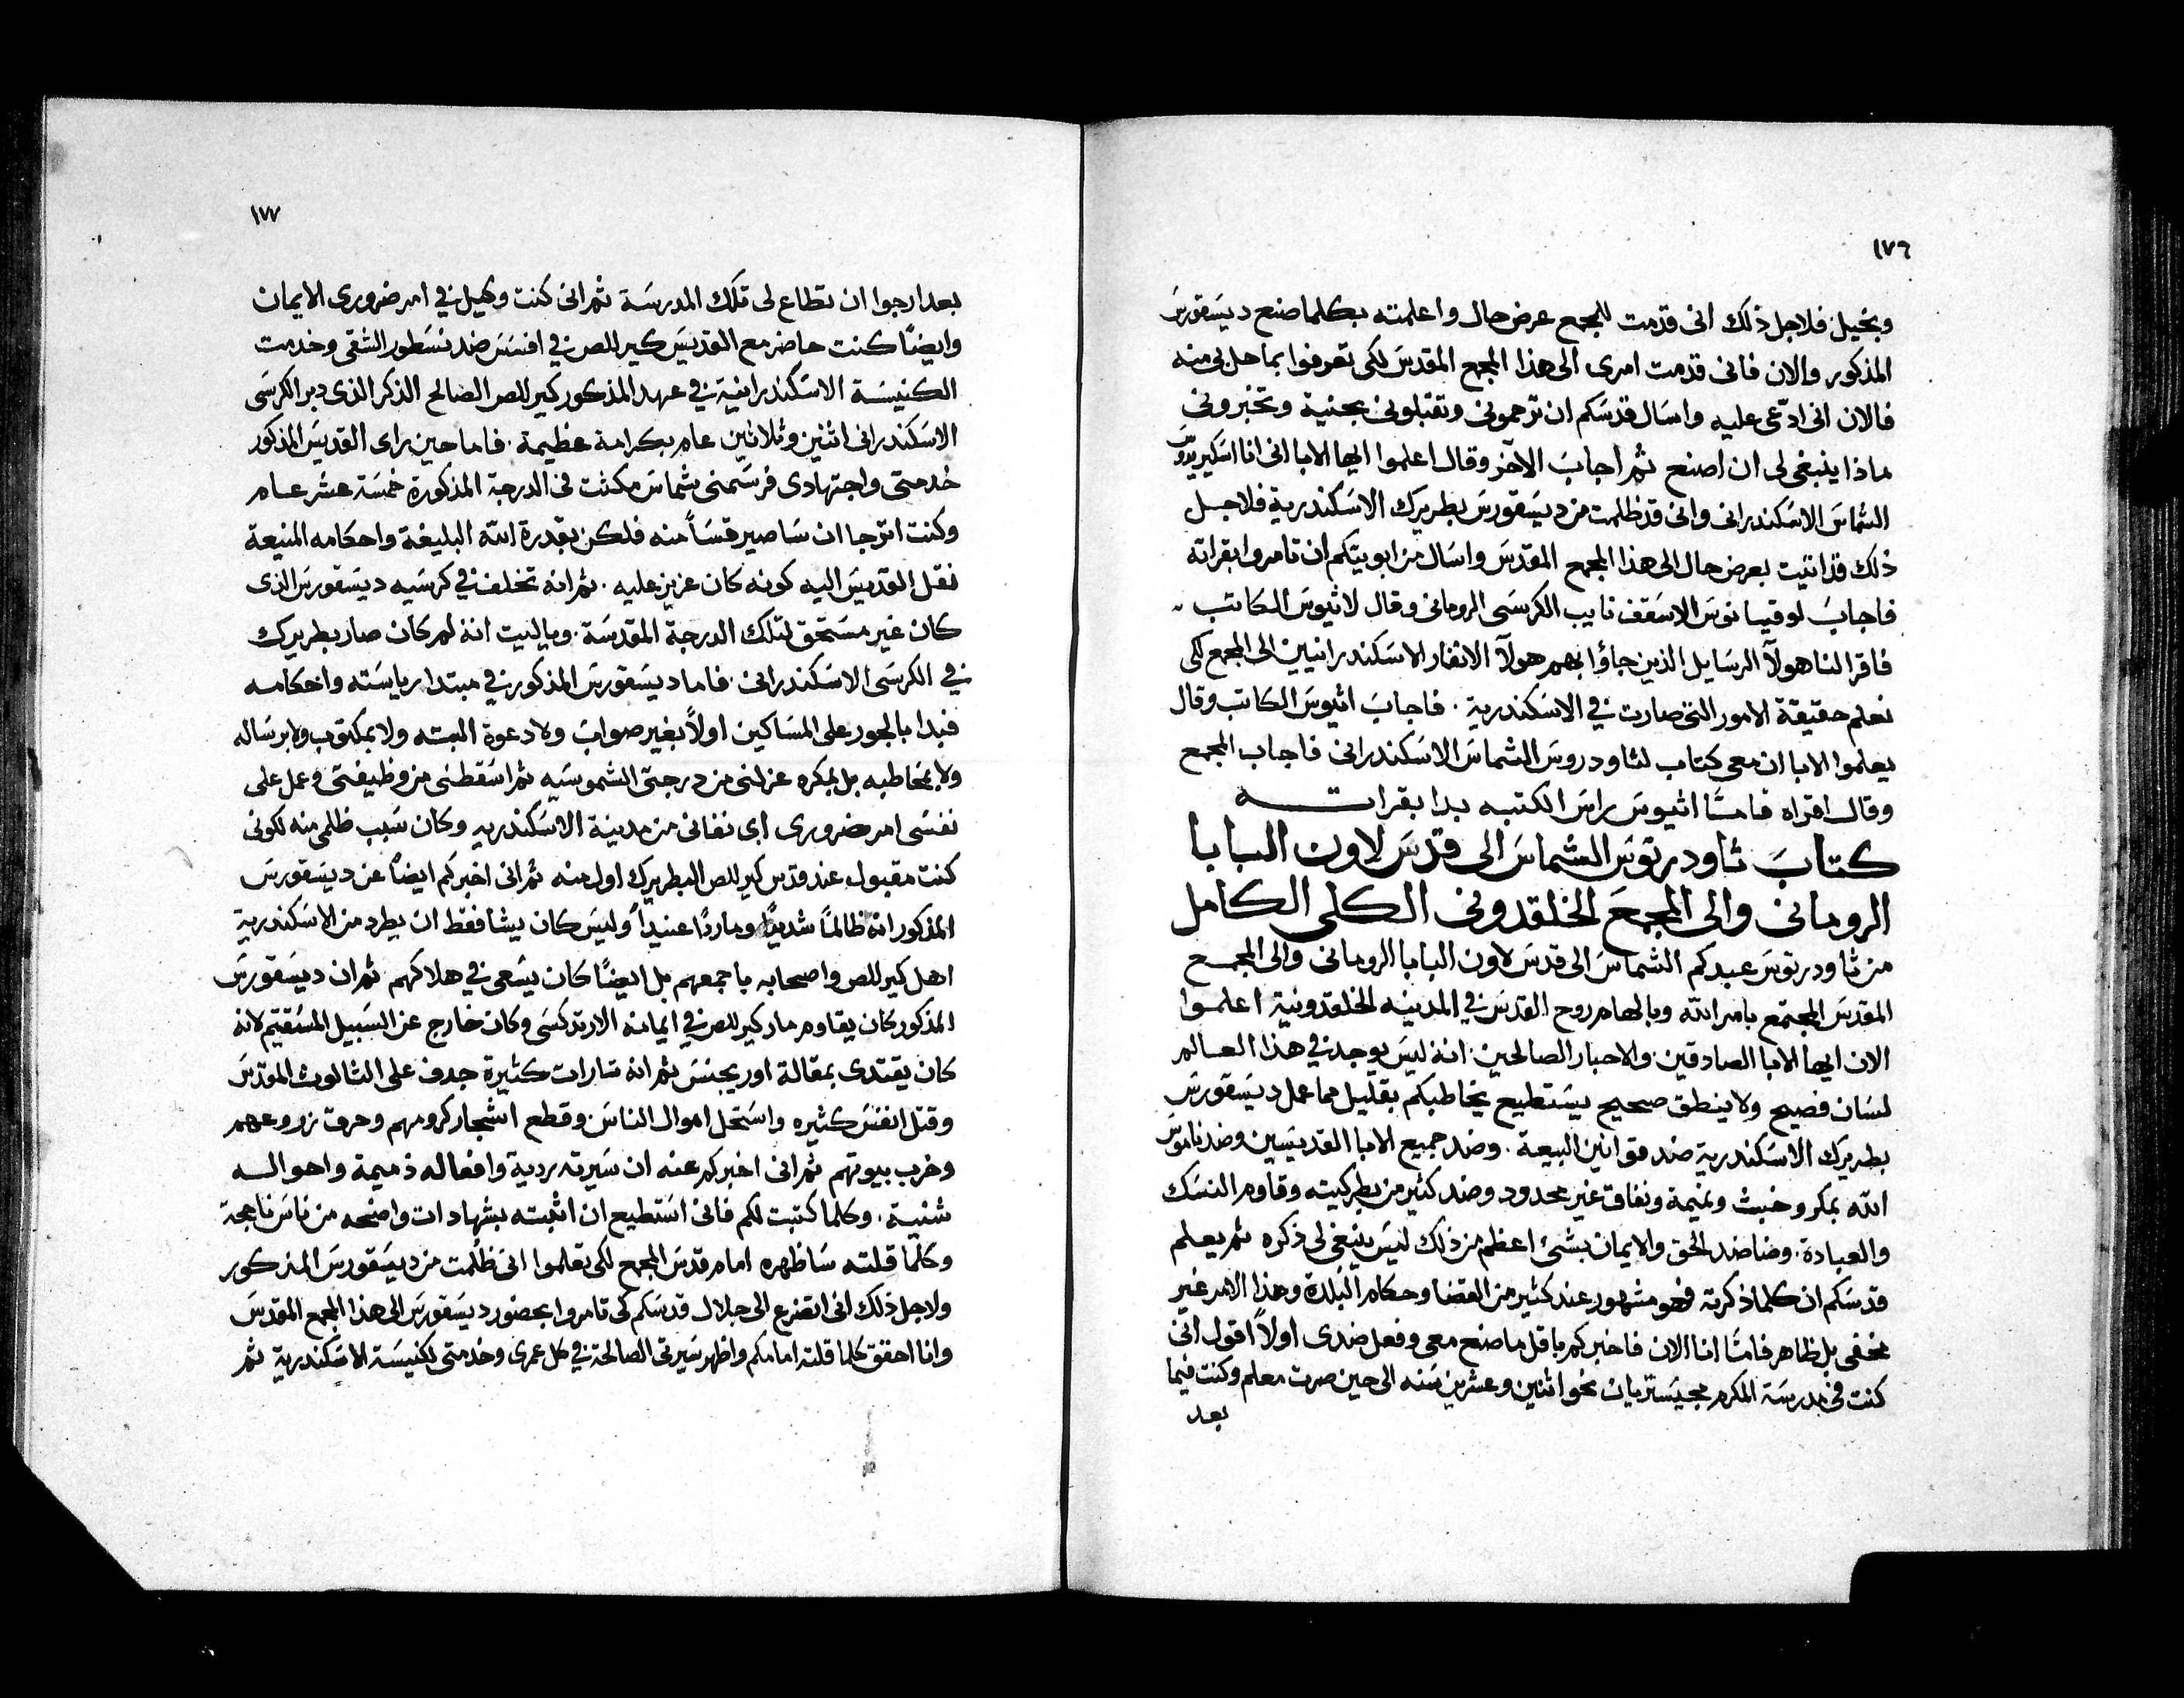 ١٧٦
وبخيل فلاجل ذلك انى قدمت للمجمع عرض حال واعلمته بكلما صنع ديسقورس
المذكور والان فانى قدمت امرى الى هذا المجمع المقدس لكى تعرفوا بما حل بى منه
فالان انى ادعى عليه واسال قدسكم ان ترحمونى وتقبلونى بحنية وتخبرونى
ماذا ينبغى لى ان اصنع ثم اجاب الآخر وقال اعلموا ايها الابا انى انا اسكيريون
الشماس الاسكندرانى وانى قد ظلمت من ديسقورس بطريرك الاسكندرية فلاجل
ذلك قد اتيت بعرض حال الى هذا المجمع المقدس واسال من ابويتكم ان تامروا بقراته
فاجاب لوقيانوس الاسقف نايب الكرسى الرومانى وقال لاثيوس الكاتب
فاقرا لنا هولآ الرسايل الذين جاؤا بهم هولآ الانفار الاسكندرانيين الى المجمع لكى
نعلم حقيقة الامور التى صارت فى الاسكندرية . فاجاب اثيوس الكاتب وقال
يعلموا الابا ان معى كتاب لثاودروس الشماس الاسكندرانى فاجاب المجمع
وقال اقراه فامًّا اثيوس راس الكتبه بدا بقراته
كتاب ثاودرتوس الشماس الى قدس لاون البابا
الرومانى والى المجمع الخلقدونى الكلى الكامل
من ثاودرتوس عبدكم الشماس الى قدس لاون البابا الرومانى والى المجمع
المقدس المجتمع بامر الله وبالهام روح القدس فى المدينه الخلقدونية اعلموا
الان ايها الابا الصادقين والاحبار الصالحين انه ليس يوجد فى هذا العالم
لسان فصيح ولا ينطق صحيح يستطيع يخاطبكم بقليل مما عمل ديسقورس
بطريرك الاسكندرية ضد قوانين البيعة . وضد جميع الابا القديسين وضد ناموس
الله بمكر وخبث ونميمة ونفاق غير محدود وضد كثير من بطركيته وقاوم النسك
والعبادة . وضاضد الحق والايمان بشئ اعظم من ذلك ليس ينبغى لى ذكره ثم يعلم
قدسكم ان كلما ذكرته فهو مشهور عند كثير من القضا وحكام البلدة وهذا الامر غير
مخفى بل ظاهر فامًا انا الان فاخبركم باقل ما صنع معى وفعل ضدى اولاً اقول انى
كنت فى مدرسة المكرم مجيستريان نحو اثنين وعشرين سنه الى حين صرت معلم وكنت فيما
بعد
١٧٧
بعد ارجوا ان تطاع لى تلك المدرسة ثم انى كنت وكيل فى امر ضرورى الايمان
وايضًا كنت حاضر مع القديس كيرللص فى افسس ضد نسطور الشقى وخدمت
الكنيسة الاسكندرانية فى عهد المذكور كيرللص الصالح الذكر الذى دبر الكرسى
الاسكندرانى اثنين وثلاثين عام بكرامة عظيمة . فاما حين راى القديس المذكور
خدمتى واجتهادى فرسمنى شماس مكثت فى الدرجة المذكورة خمسة عشر عام
وكنت اترجا ان ساصير قسًا منه فلكن بقدرة الله البليغة واحكامه المنيعة
نقل القديس اليه كونه كان عزيز عليه . ثم انه تخلف فى كرسيه ديسقورس الذى
كان غير مستحق لتلك الدرجة المقدسة . وياليت انه لم كان صار بطريرك
فى الكرسى الاسكندرانى . فاما ديسقورس المذكور فى مبتدا رياسته واحكامه
فبدا بالجور على المساكين اولاً بغير صواب ولا دعوة البته ولا بمكتوب ولا برساله
ولا بمخاطبه بل بمكره عزلنى من درجتى الشموسيه ثم اسقطنى من وظيفتى وعمل على
نفسى امر ضرورى اى نفانى من مدينة الاسكندريه وكان سبب ظلمى منه لكونى
كنت مقبول عند قدس كيرللص البطريرك اول منه ثم انى اخبركم ايضًا عن ديسقورس
المذكور انه ظالمًا شديدًا وماردًا عنيدًا وليس كان يشا فقط ان يطرد من الاسكندرية
اهل كيرللص واصحابه باجمعهم بل ايضًا كان يسعى فى هلاكهم ثم ان ديسقورس
المذكور كان يقاوم مار كيرللص فى ايمانه الارتدكسى وكان خارج عن السبيل المستقيم لانه
كان يقتدى بمقالة اوريجنس ثم انه تارات كثيرة جدف على الثالوث المقدس
وقتل انفس كثيره واستحل اموال الناس وقطع اشجار كرومهم وحرق زروعهم
وخرب بيوتهم ثم انى اخبركم عنه ان سيرته ردية وافعاله ذميمة واحواله
شنيه . وكلما كتبت لكم فانى استطيع ان اثبته بشهادات واضحه من ناس ناجحة
وكلّما قلته ساظهره امام قدس المجمع لكى تعلموا انى ظُلمت من ديسقورس المذكور
ولاجل ذلك انى اتضرع الى جلال قدسكم كى تامروا بحضور ديسقورس الى هذا المجمع المقدس
وانا احقق كلما قلته امامكم واظهر سيرتى الصالحة فى كل عمرى وخدمتى لكنيسة الاسكندرية ثم